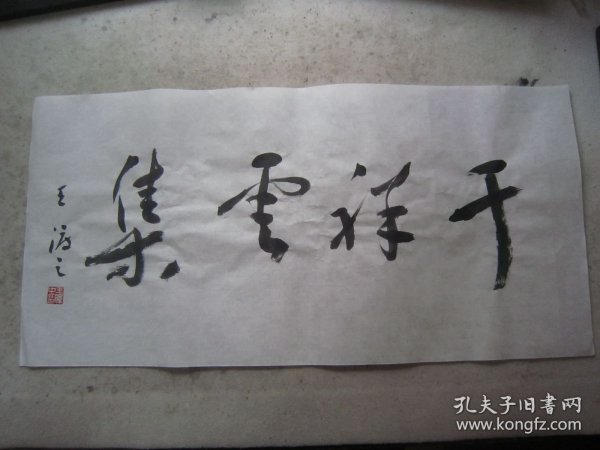 千祥雲集
王渡之
孔夫子旧書网
www.kongfz.com